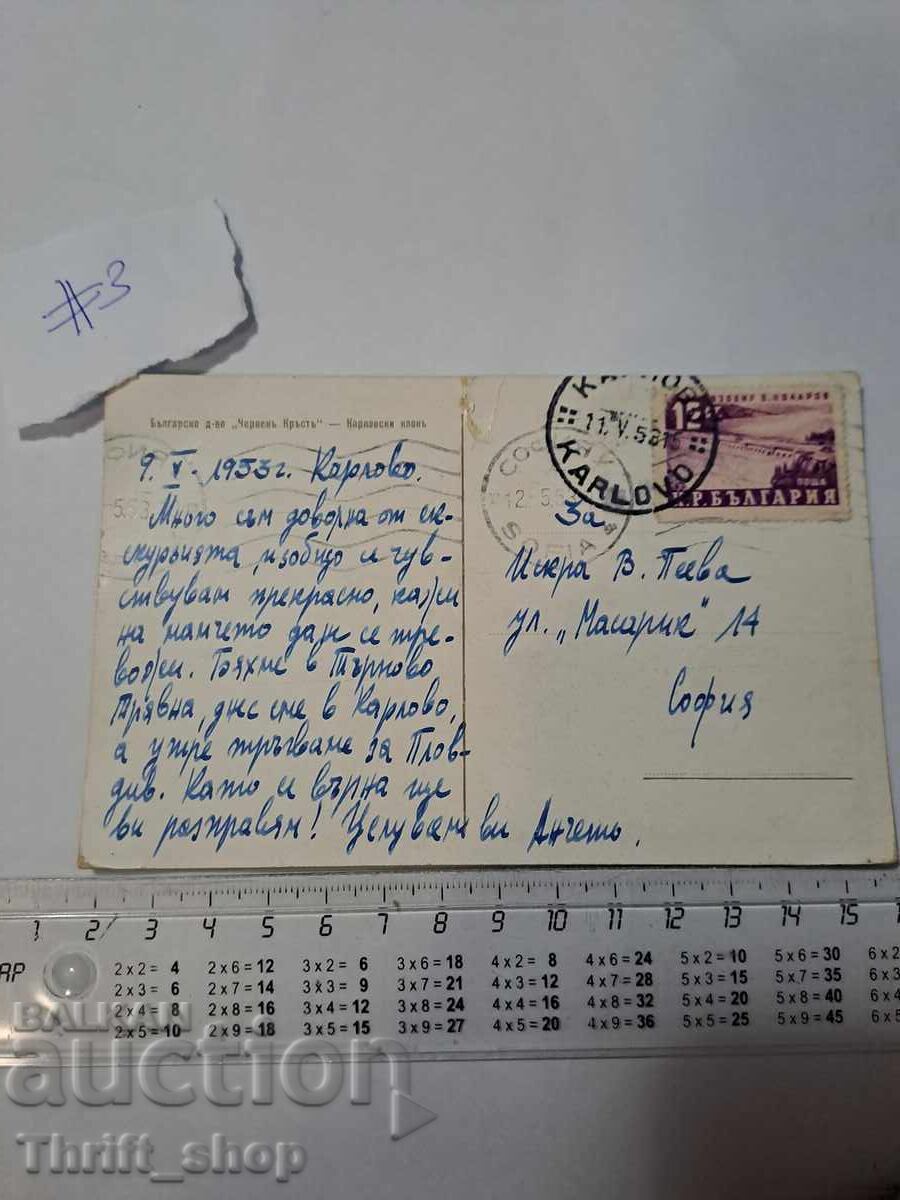 #3
Българско д-во „Червенъ Кръстъ" — Карловски клонъ
КАРЛОВО
11.V.53 15
KARLOVO
12
ЯЗОВИР В. КОЛАРОВ
ПОЩА
Н.Р. БЪЛГАРИЯ
СОФИЯ
12.5.53
SOFIA
9. V. 1953 г. Карлово.
Много съм доволна от ек-
скурзията, изобщо се чув-
ствувам прекрасно, кажи
на мамчето да не се тре-
вожи. Бяхме в Търново
Трявна, днес сме в Карлово,
а утре тръгваме за Плов-
див. Като се върна ще
ви разправям! Целувам ви Анчето.
За
Искра В. Пеева
ул. „Масарик" 14
София
1 2 3 4 5 6 7 8 9 10 11 12 13 14 15
АР
2 x 2 = 4 2 x 6 = 12 3 x 2 = 6 3 x 6 = 18 4 x 2 = 8 4 x 6 = 24 5 x 2 = 10 5 x 6 = 30 6 x 2
2 x 3 = 6 2 x 7 = 14 3 x 3 = 9 3 x 7 = 21 4 x 3 = 12 4 x 7 = 28 5 x 3 = 15 5 x 7 = 35 6 x 3
2 x 4 = 8 2 x 8 = 16 3 x 4 = 12 3 x 8 = 24 4 x 4 = 16 4 x 8 = 32 5 x 4 = 20 5 x 8 = 40 6 x 4
2 x 5 = 10 2 x 9 = 18 3 x 5 = 15 3 x 9 = 27 4 x 5 = 20 4 x 9 = 36 5 x 5 = 25 5 x 9 = 45 6 x 5
BALKAN
auction
Thrift_shop